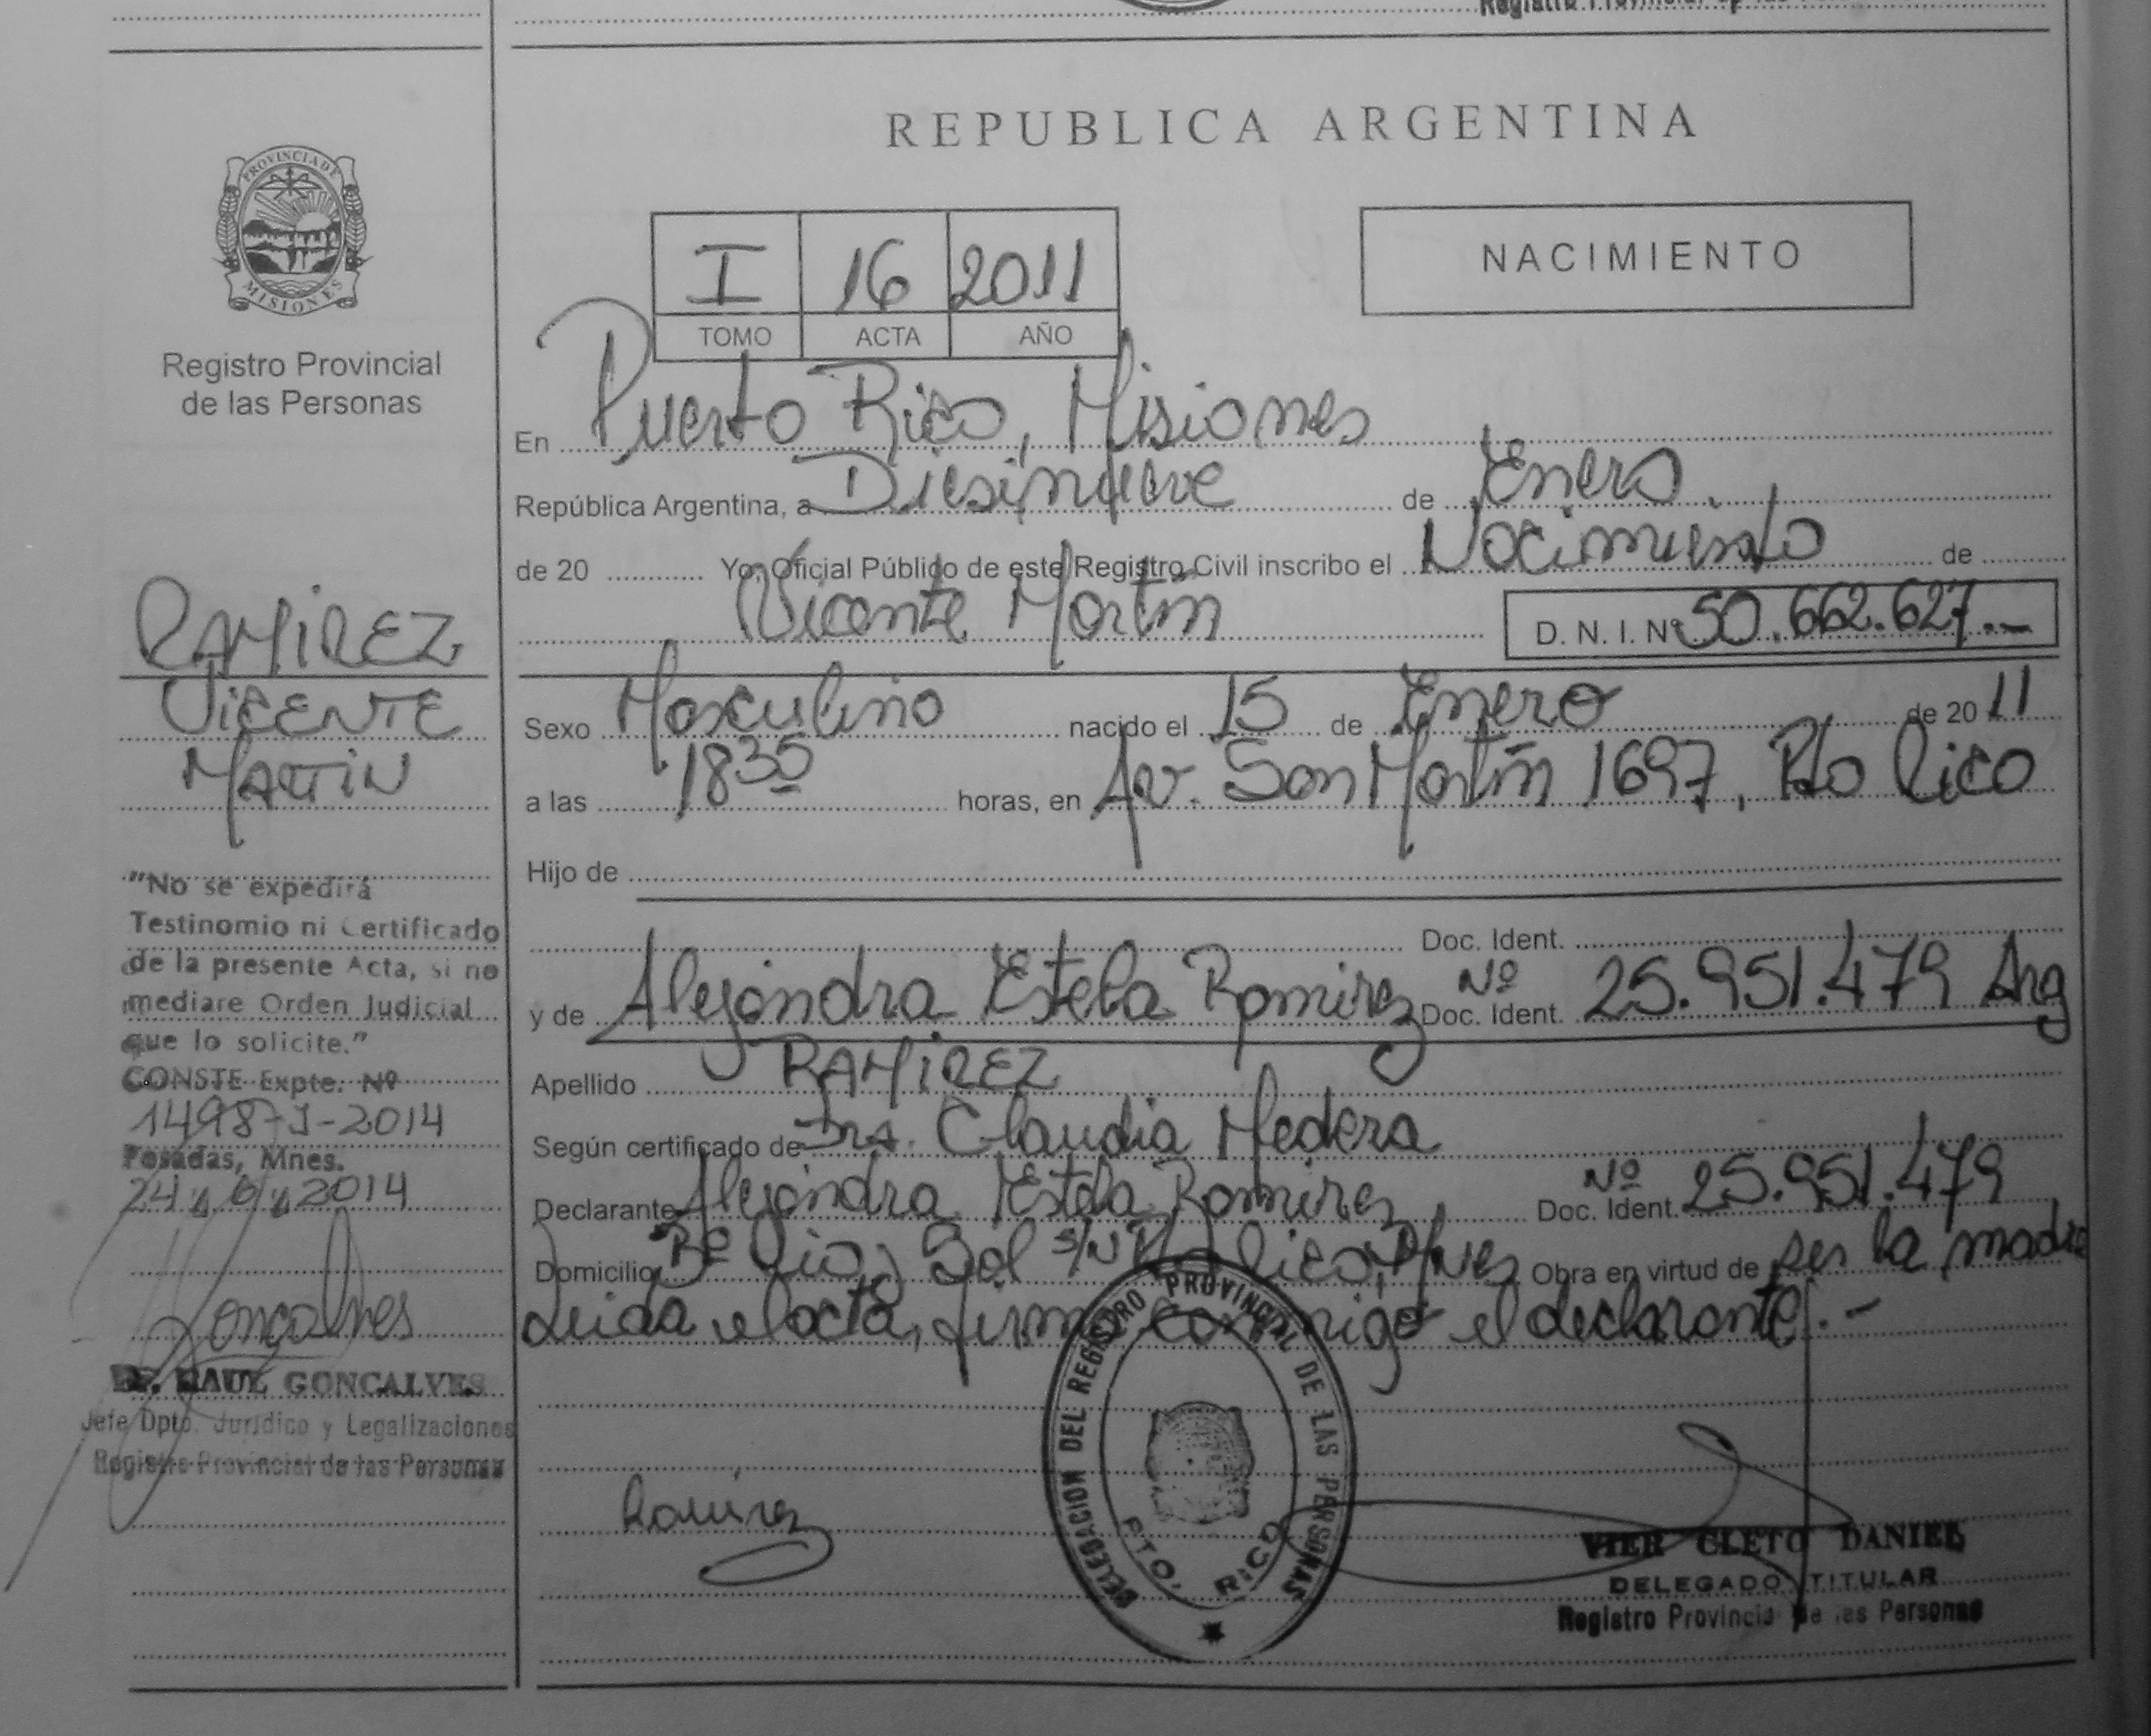 REPUBLICA ARGENTINA
PROVINCIA DE
MISIONES
Registro Provincial
de las Personas
I 16 2011
TOMO ACTA AÑO
NACIMIENTO
En Puerto Rico, Misiones
República Argentina, a Diesinueve de Enero
de 20 Yo, Oficial Público de este Registro Civil inscribo el Nacimiento de
Vicente Martín D. N. I. Nº 50.662.627.-
RAMIREZ
VICENTE
MARTIN
Sexo Masculino nacido el 15 de Enero de 2011
a las 18 35 horas, en Av. San Martín 1697, Pto Rico
Hijo de
Doc. Ident.
y de Alejandra Estela Ramirez Nº Doc. Ident. 25.951.479 Arg
Apellido RAMIREZ
Según certificado de Dra. Claudia Medera
Declarante Alejandra Estela Ramirez Nº Doc. Ident. 25.951.479
Domicilio Bº Sol s/n Pto Rico, Mnes Obra en virtud de ser la madre
Leida el acta, firma conmigo el declarante.-
"No se expedirá
Testinomio ni Certificado
de la presente Acta, si no
mediare Orden Judicial
que lo solicite."
CONSTE Expte. Nº
1498-J-2014
Posadas, Mnes.
24 6 2014
Goncalves
Dr. RAUL GONCALVES
Jefe Dpto. Jurídico y Legalizaciones
Registro Provincial de las Personas
Ramirez
DELEGACION DEL REGISTRO PROVINCIAL DE LAS PERSONAS
PTO. RICO
VIER CLETO DANIEL
DELEGADO TITULAR
Registro Provincial de las Personas